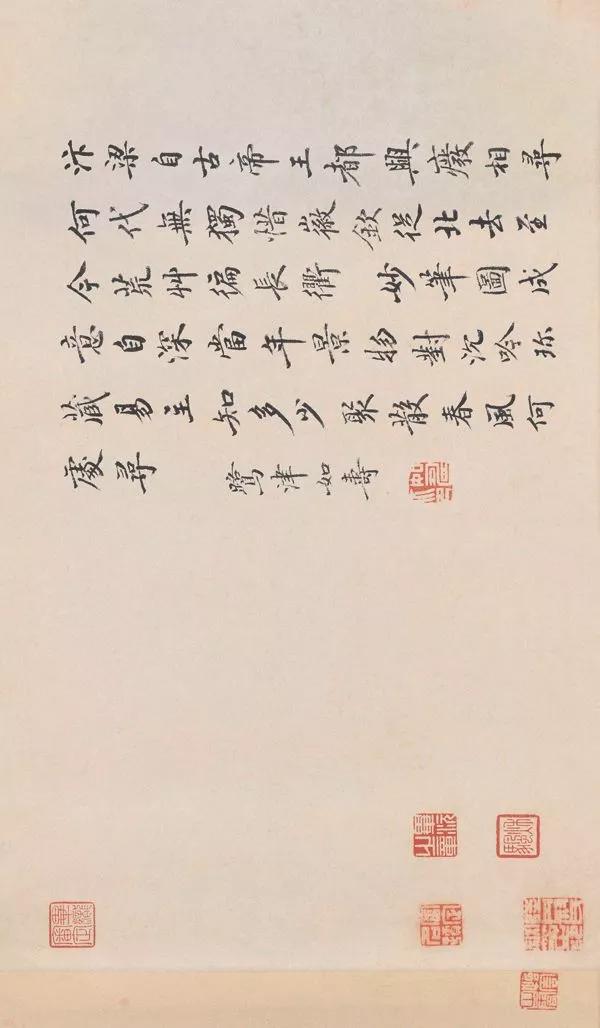 汴梁自古帝王都興廢相尋
何代無獨惜徽欽從北去至
今荒艸徧長衢 妙筆圖成
意自深當年景物對沉吟珎
藏易主知多少聚散春風何
處尋 鷺津如壽